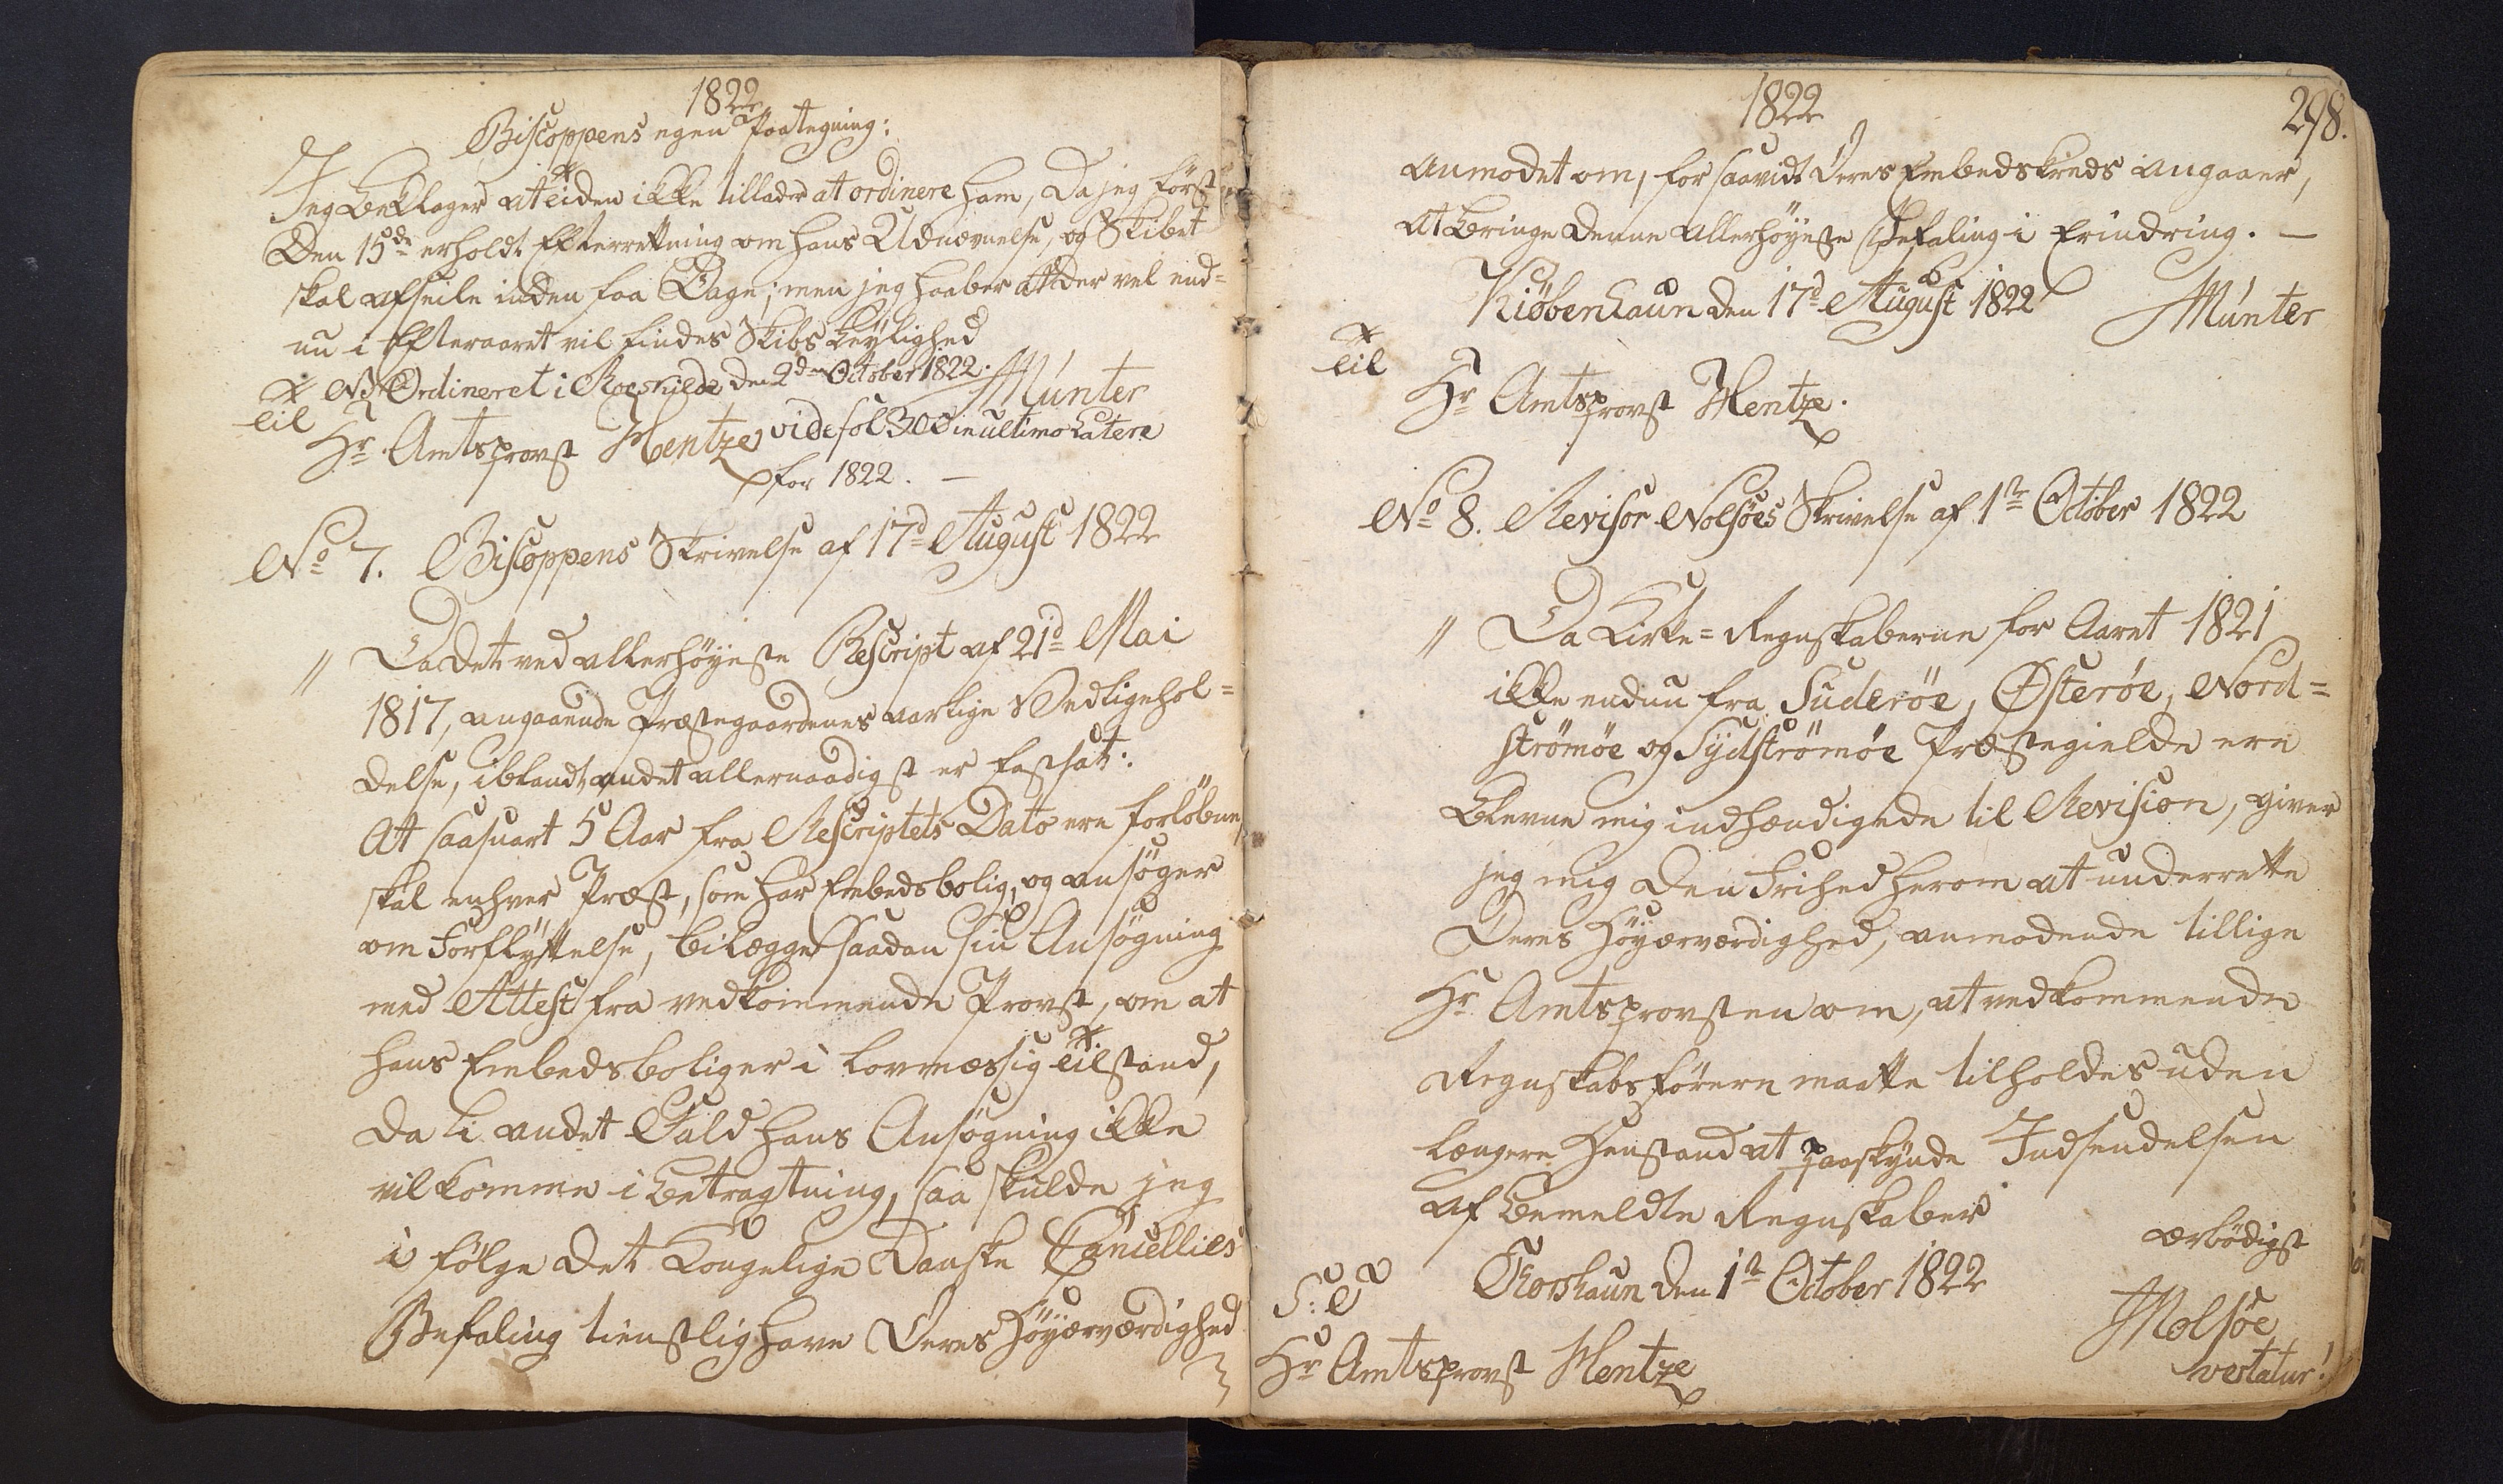 1822
Biscoppens egen Paategning:
Jeg beklager at Tiden ikke tillader at ordinere ham, da jeg først
den 15de erholdt Efterretning om hans Udnævnelse, og Skibet
skal afseile inden faa Dage; men jeg haaber at der vel end-
nu i Efteraaret vil findes Skibs Leylighed
* NB Ordineret i Roeskilde den 2den October 1822. Münter
Til
Hr Amtsprovst Hentze vide fol 300 in ultimo Latere
for 1822. —
No 7. Biscoppens Skrivelse af 17d August 1822
" Da det ved allerhöyeste Rescript af 21d Mai
1817, angaaende Præstegaardenes aarlige Vedligehol=
delse, iblandt andet allernaadigst er fastsat:
At saasnart 5 Aar fra Rescriptets Dato ere forløbne,
skal enhver Præst, som har Embedsbolig, og ansøger
om Forflyttelse, bilægge saadan sin Ansøgning
med Attest fra vedkommende Provst, om at
hans Embedsbolig er i lovmæssig Tilstand,
da i andet Fald hans Ansøgning ikke
vil komme i Betragtning, saa skulde jeg
i følge det Kongelige Danske Cancellies
Befaling tienstlig have Deres Höyærværdighed
1822
298.
anmodet om, for saavidt Deres Embedskreds angaaer,
at bringe denne allerhöyeste Befaling i Erindring. —
Kiöbenhaun den 17d August 1822
Münter
Til
Hr Amtsprovst Hentze.
No 8. Revisor Nolsöes Skrivelse af 1te October 1822
" Da Kirke=Regnskaberne for Aaret 1821
ikke endnu fra Suderöe, Österöe, Nord=
strömöe og Sydströmöe Præstegielde ere
blevne mig indhændigede til Revision, giver
jeg mig den Frihed herom at underrette
Deres Höyærværdighed, anmodende tillige
Hr Amtsprovsten om, at vedkommende
Regnskabsförere maatte tilholdes uden
længere Henstand at paaskynde Indsendelsen
af bemeldte Regnskaber
ærbödigst
Thorshaun den 1te October 1822
Nolsöe
S: T
Hr Amtsprovst Hentze
vertatur!